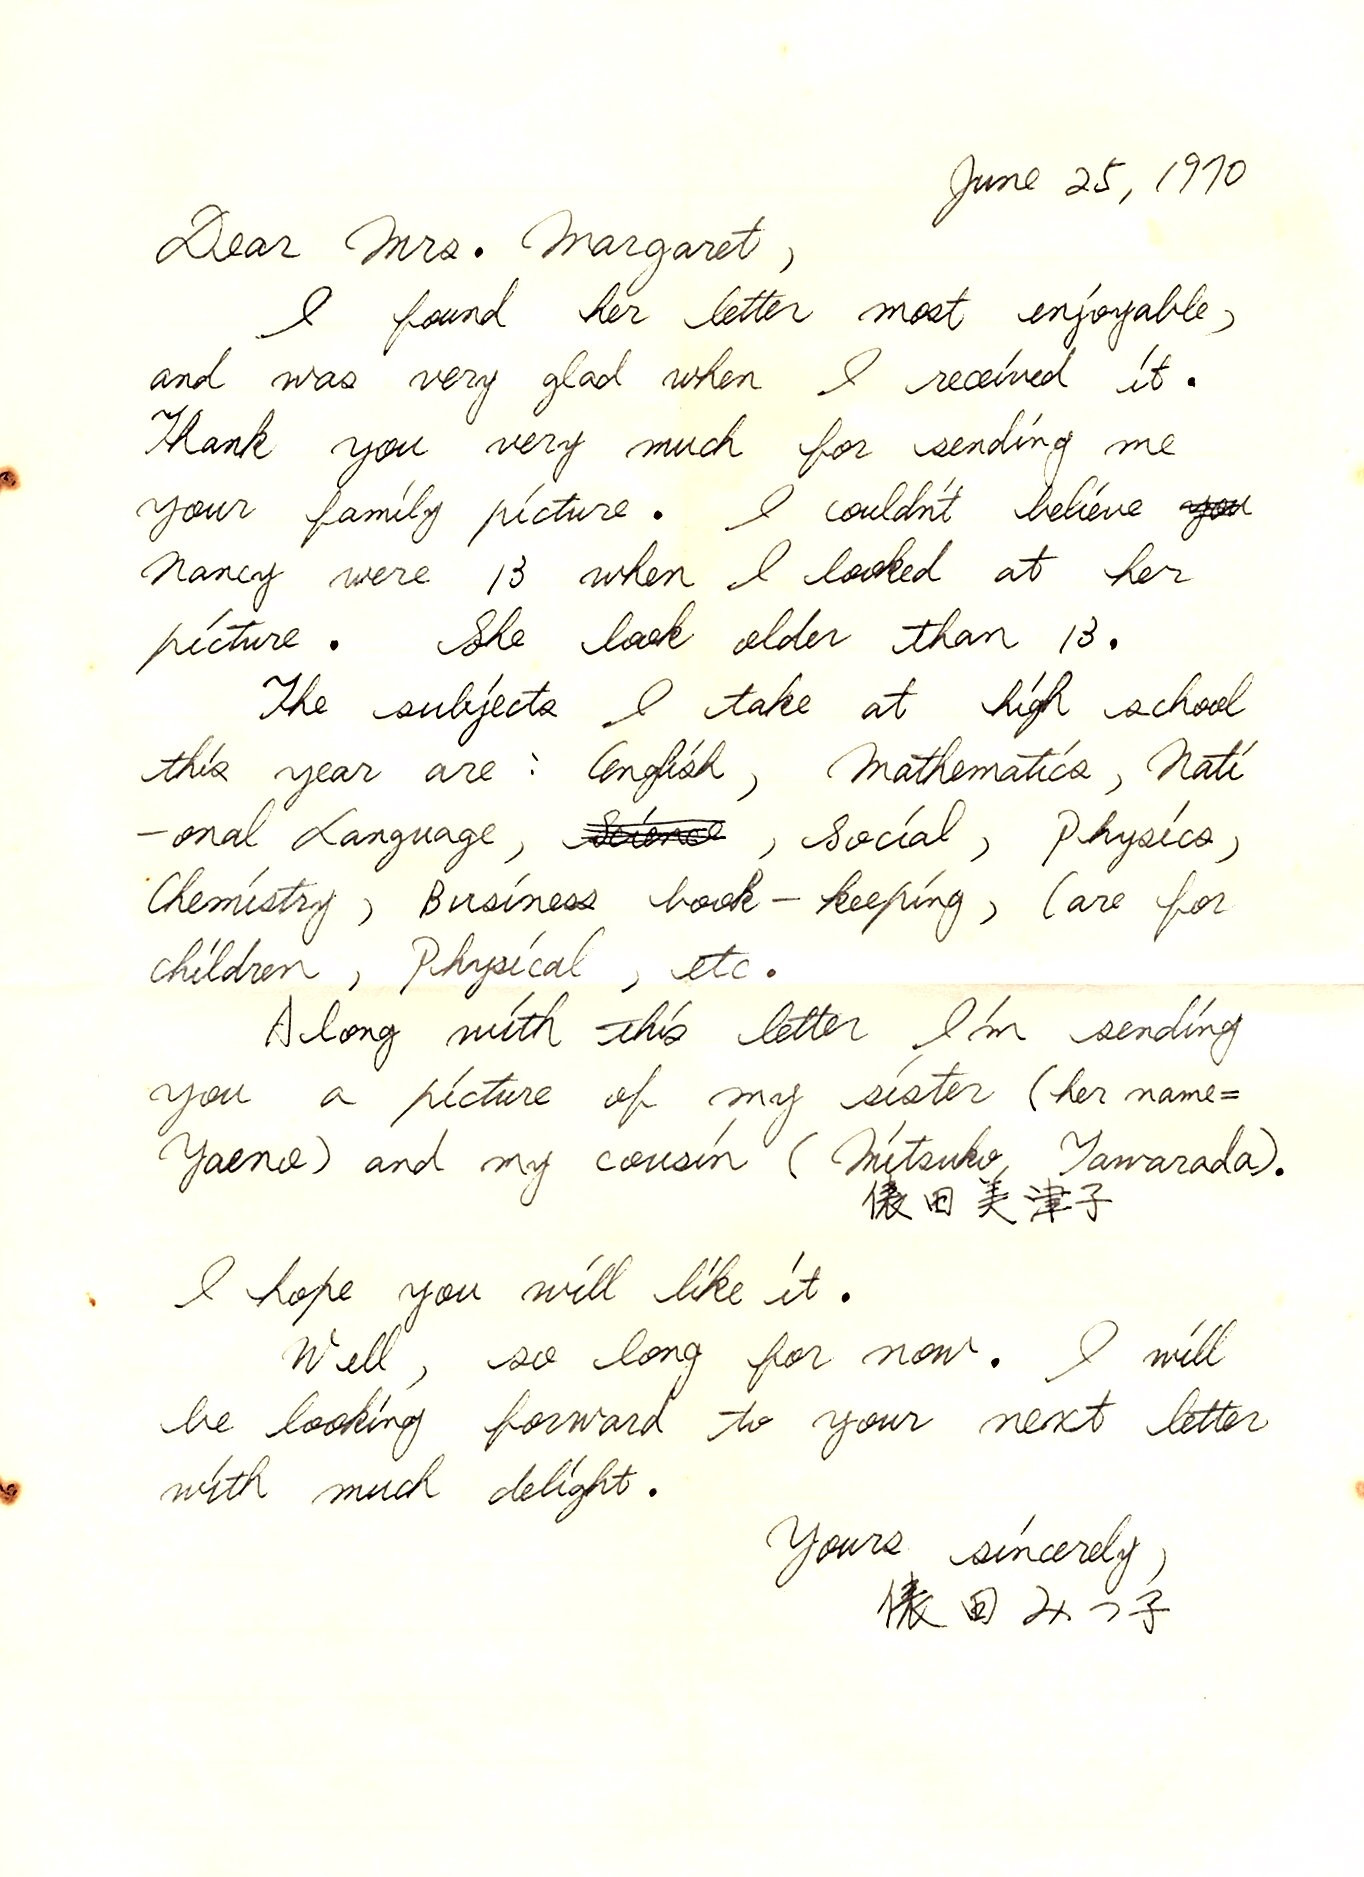 June 25, 1970
Dear Mrs. Margaret,
I found her letter most enjoyable,
and was very glad when I received it.
Thank you very much for sending me
your family picture. I couldn't believe you
Nancy were 13 when I looked at her
picture. She look older than 13.
The subjects I take at high school
this year are : English, Mathematics, Nati
-onal Language, Science, Social, Physics,
Chemistry, Business book-keeping, Care for
children, Physical, etc.
Along with this letter I'm sending
you a picture of my sister (her name=
Yaeno) and my cousin (Mitsuko, Tawarada).
俵田美津子
I hope you will like it.
Well, so long for now. I will
be looking forward to your next letter
with much delight.
Yours sincerely,
俵田みつ子